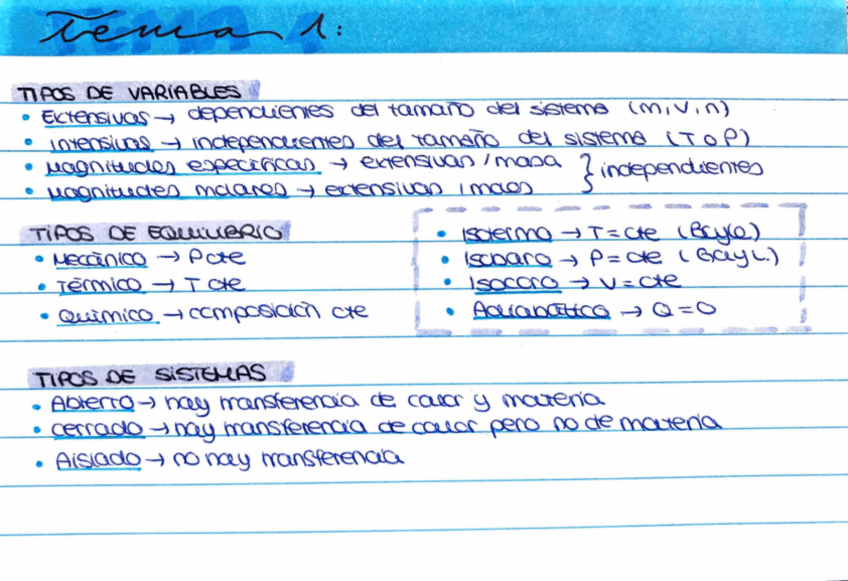 Tema 1:
TIPOS DE VARIABLES
• Extensivas → dependientes del tamaño del sistema (m, V, n)
• Intensivas → independientes del tamaño del sistema (T o P)
• Magnitudes específicas → extensivas / masa } independientes
• Magnitudes molares → extensivas / moles
TIPOS DE EQUILIBRIO
• Mecánico → P cte
• Térmico → T cte
• Químico → composición cte
• Isotermo → T = cte (Boyle)
• Isobaro → P = cte (Gay L.)
• Isocoro → V = cte
• Adiabático → Q = 0
TIPOS DE SISTEMAS
• Abierto → hay transferencia de calor y materia
• Cerrado → hay transferencia de calor pero no de materia
• Aislado → no hay transferencia